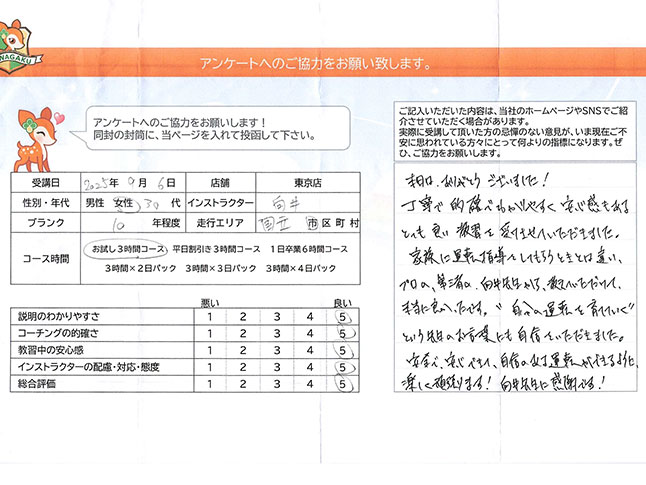 NAGAKU
アンケートへのご協力をお願い致します。
アンケートへのご協力をお願いします！
同封の封筒に、当ページを入れて投函して下さい。
ご記入いただいた内容は、当社のホームページやSNSでご紹
介させていただく場合があります。
実際に受講して頂いた方の忌憚のない意見が、いま現在ご不
安に思われている方々にとって何よりの指標になります。ぜ
ひ、ご協力をお願いします。
受講日 2025年 9月 6日 店舗 東京店
性別・年代 男性 女性 30代 インストラクター 向井
ブランク 10 年程度 走行エリア 国立 市区町村
コース時間 お試し3時間コース 平日割引き3時間コース 1日卒業6時間コース
3時間×2日パック 3時間×3日パック 3時間×4日パック
悪い 良い
説明のわかりやすさ 1 2 3 4 5
コーチングの的確さ 1 2 3 4 5
教習中の安心感 1 2 3 4 5
インストラクターの配慮・対応・態度 1 2 3 4 5
総合評価 1 2 3 4 5
本日は、ありがとうございました！
丁寧で的確でわかりやすく安心感もある
とても良い教習を受けさせていただきました。
家族に運転指導をしてもらうときとは違い、
プロの、第三者の、向井先生から、教えていただけて、
本当に良かったです。"自分の運転を育てていく"
という先生のお言葉にも自信をいただきました。
安全で、安心できて、自信のある運転ができるように、
楽しく頑張ります！向井先生に感謝です！